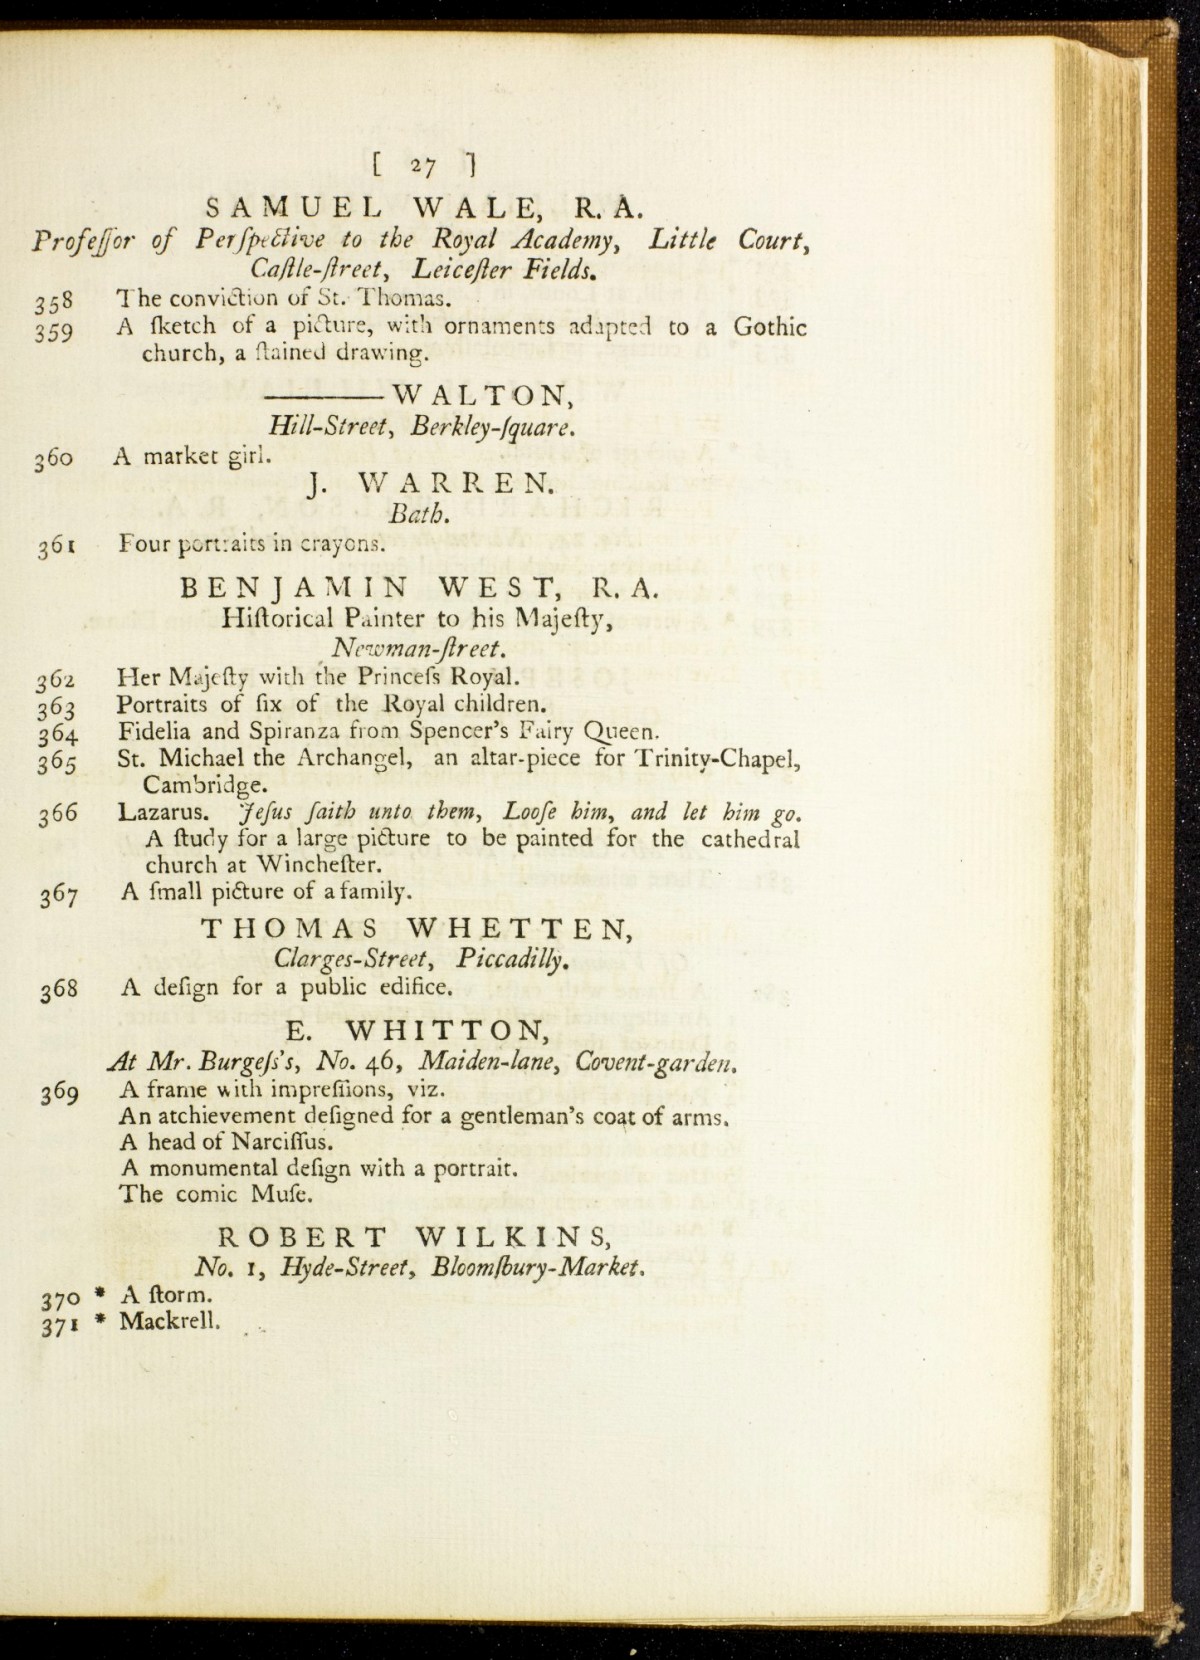 [ 27 ]
SAMUEL WALE, R. A.
Profeſſor of Perſpective to the Royal Academy, Little Court,
Caſtle-ſtreet, Leiceſter Fields.
358 The conviction of St. Thomas.
359 A ſketch of a picture, with ornaments adapted to a Gothic
church, a ſtained drawing.
———WALTON,
Hill-Street, Berkley-ſquare.
360 A market girl.
J. WARREN.
Bath.
361 Four portraits in crayons.
BENJAMIN WEST, R. A.
Hiſtorical Painter to his Majeſty,
Newman-ſtreet.
362 Her Majeſty with the Princeſs Royal.
363 Portraits of ſix of the Royal children.
364 Fidelia and Spiranza from Spencer's Fairy Queen.
365 St. Michael the Archangel, an altar-piece for Trinity-Chapel,
Cambridge.
366 Lazarus. Jeſus ſaith unto them, Looſe him, and let him go.
A ſtudy for a large picture to be painted for the cathedral
church at Wincheſter.
367 A ſmall picture of a family.
THOMAS WHETTEN,
Clarges-Street, Piccadilly.
368 A deſign for a public edifice.
E. WHITTON,
At Mr. Burgeſs's, No. 46, Maiden-lane, Covent-garden.
369 A frame with impreſſions, viz.
An atchievement deſigned for a gentleman's coat of arms.
A head of Narciſſus.
A monumental deſign with a portrait.
The comic Muſe.
ROBERT WILKINS,
No. 1, Hyde-Street, Bloomſbury-Market.
370 * A ſtorm.
371 * Mackrell.